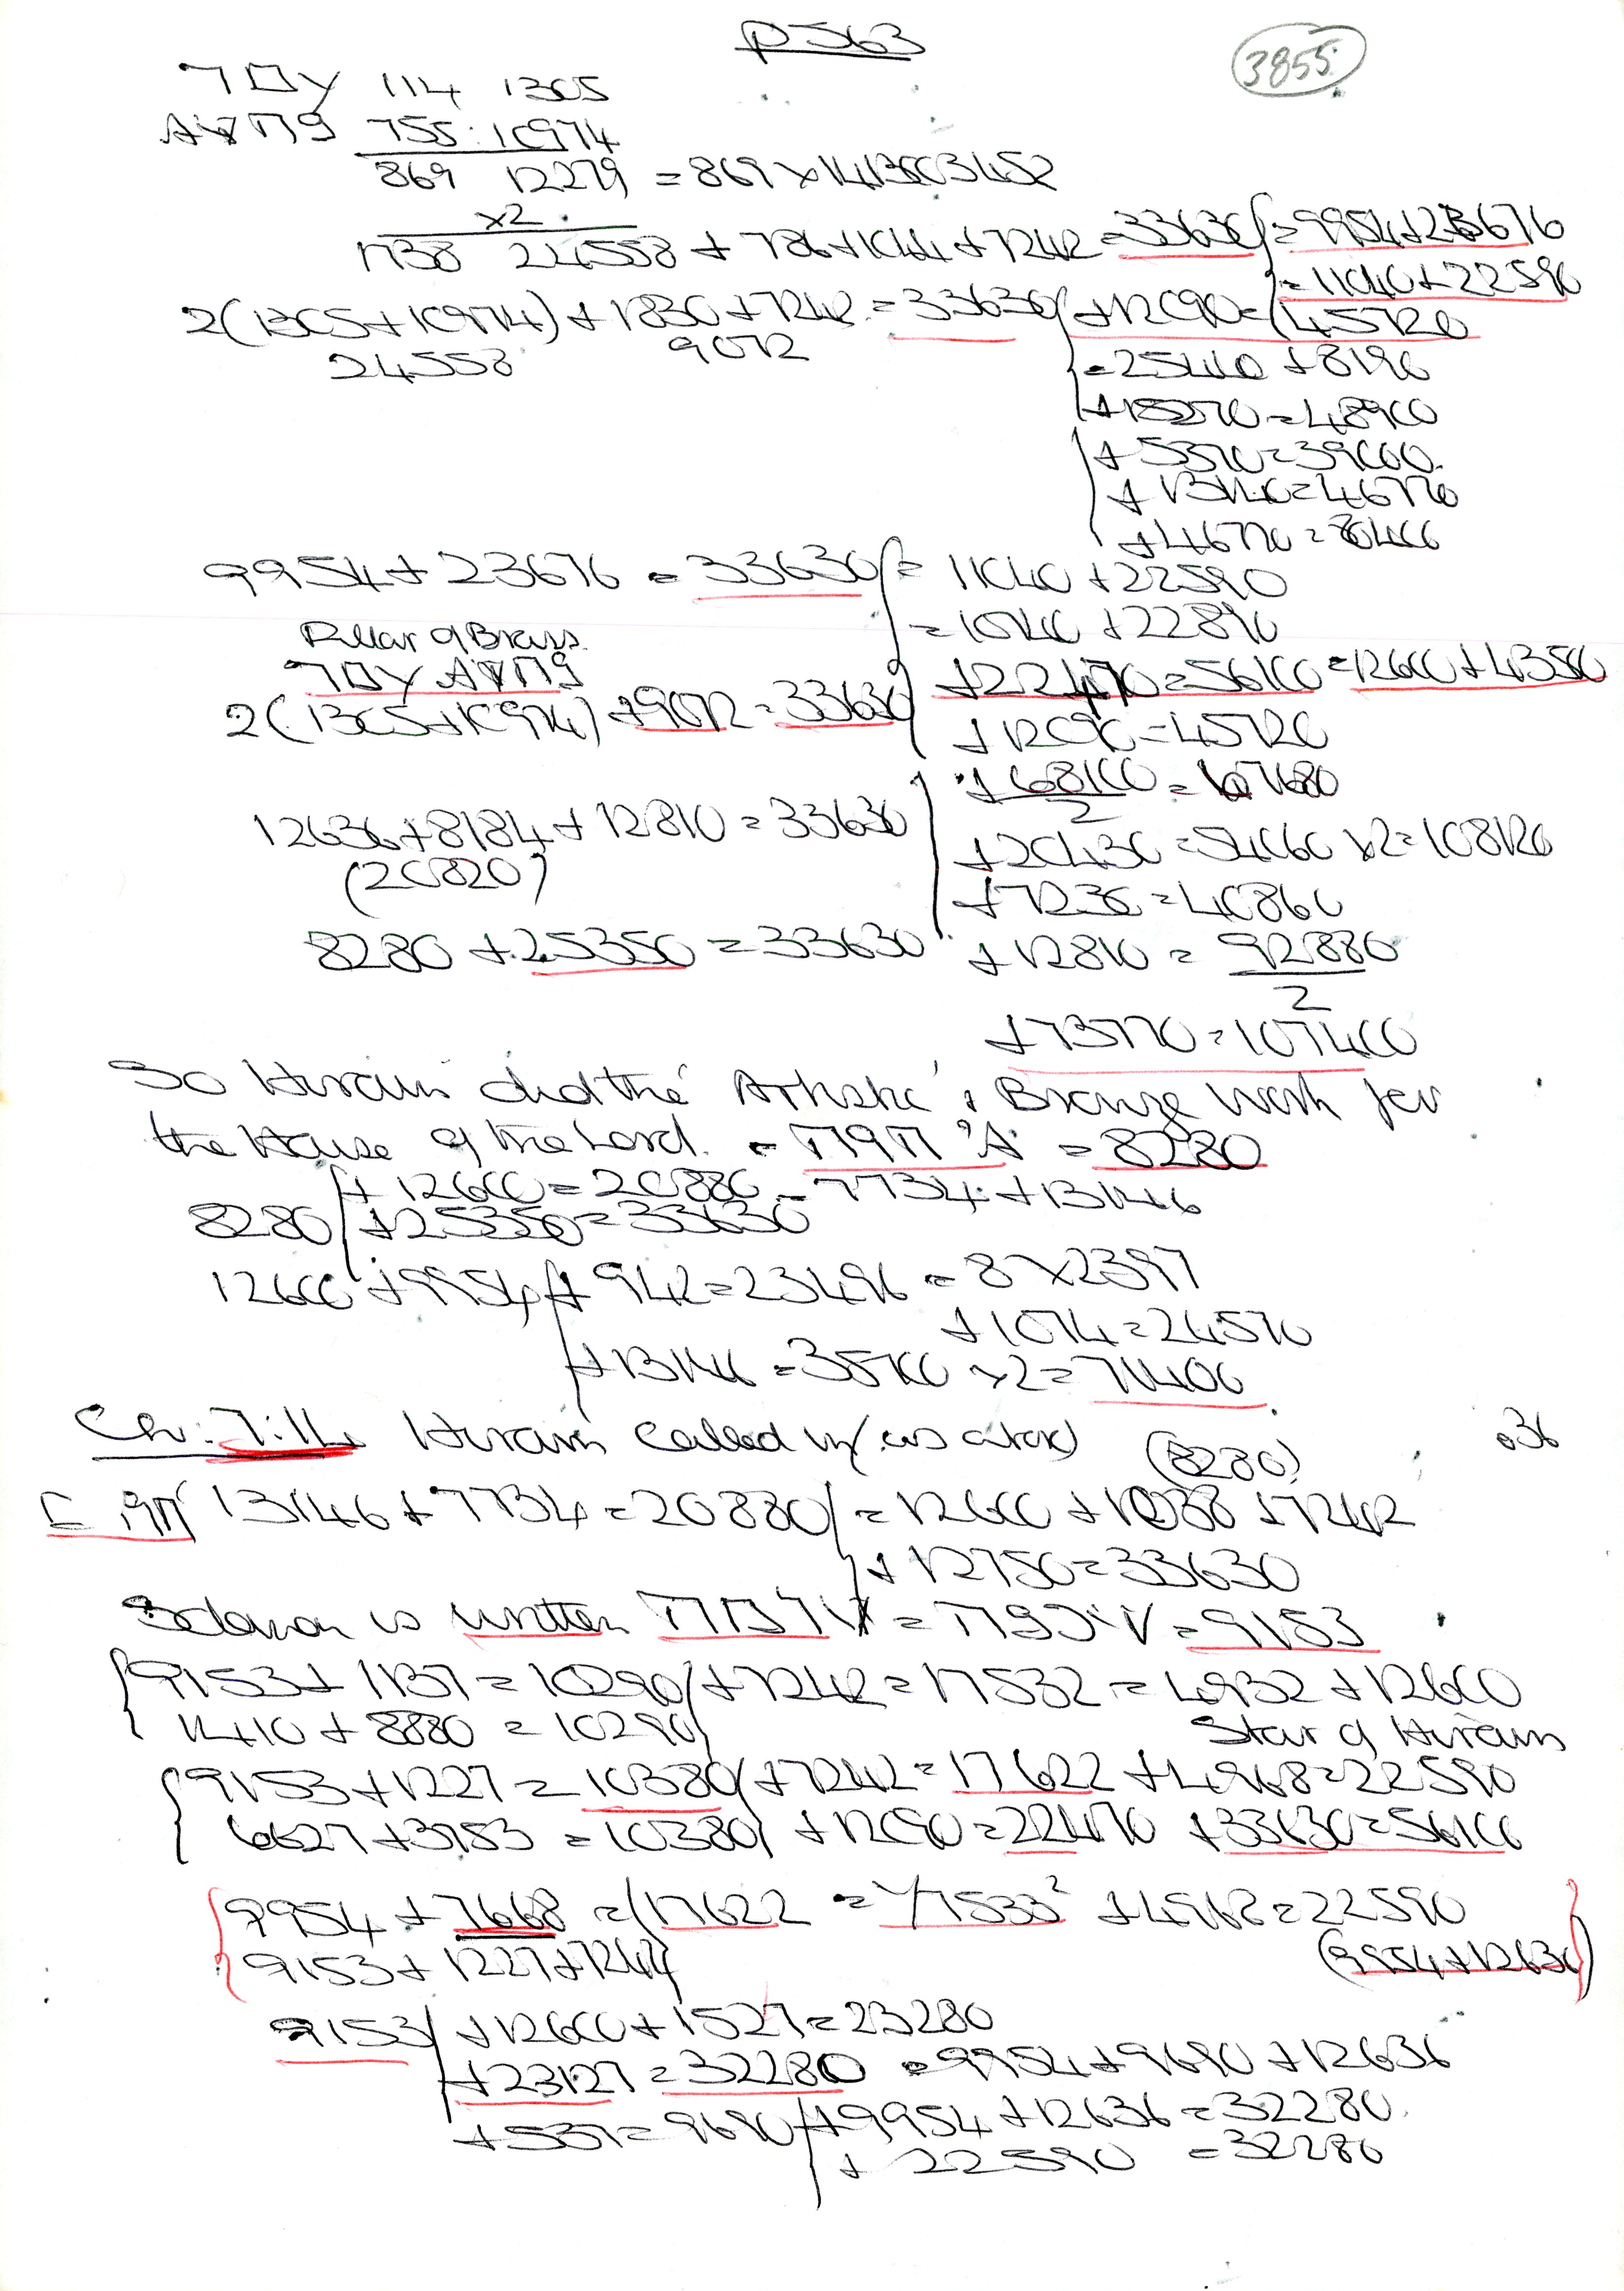 p563
3855
114 1305
755 : 10974
869 12279 = 869 x 14.13003452
x2
1738 24558 + 786 + 1044 + 7242 = 33630 = 9954 + 23676
= 11040 + 22590
2(1305 + 10974) + 1830 + 7242 = 33630 + 12090 = 45720
24558 9072
= 25440 + 8190
+ 15270 = 48900
+ 5370 = 39000
+ 13140 = 46770
+ 46770 = 80400
9954 + 23676 = 33630 = 11040 + 22590
= 10740 + 22890
Pillar of Brass
+ 22470 = 56100 = 12600 + 43500
2(1305 + 10974) + 9072 = 33630
+ 12090 = 45720
+ 68100 = 67680
2
12636 + 8184 + 12810 = 33630
(20820)
+ 20430 = 54060 x2 = 108120
+ 7230 = 40860
8280 + 25350 = 33630 + 12810 = 92880
2
+ 73770 = 107400
So Hiram did the 'Artistic' & Bronze work for
the House of the Lord. = 8280
+ 12600 = 20880 = 7734 + 13146
8280 + 25350 = 33630
12600 + 9954 + 942 = 23496 = 8 x 2397
+ 1074 = 24570
+ 13146 = 35700 x2 = 71400
Ch: 7:14 Hiram called
(8280)
.36
13146 + 7734 = 20880 = 12600 + 1038 + 7242
+ 12750 = 33630
Solomon is written = 9153
9153 + 1137 = 10290 + 7242 = 17532 = 4932 + 12600
1410 + 8880 = 10290
Star of Hiram
9153 + 1227 = 10380 + 7242 = 17622 + 4968 = 22590
6627 + 3753 = 10380 + 12090 = 22470 + 33630 = 56100
9954 + 7668 = 17622 + 4968 = 22590
9153 + 1227 + 7242
(9954 + 12636)
9153 + 12600 + 1527 = 23280
+ 23127 = 32280 = 9954 + 9690 + 12636
+ 537 = 9690 + 9954 + 12636 = 32280
+ 22590 = 32280